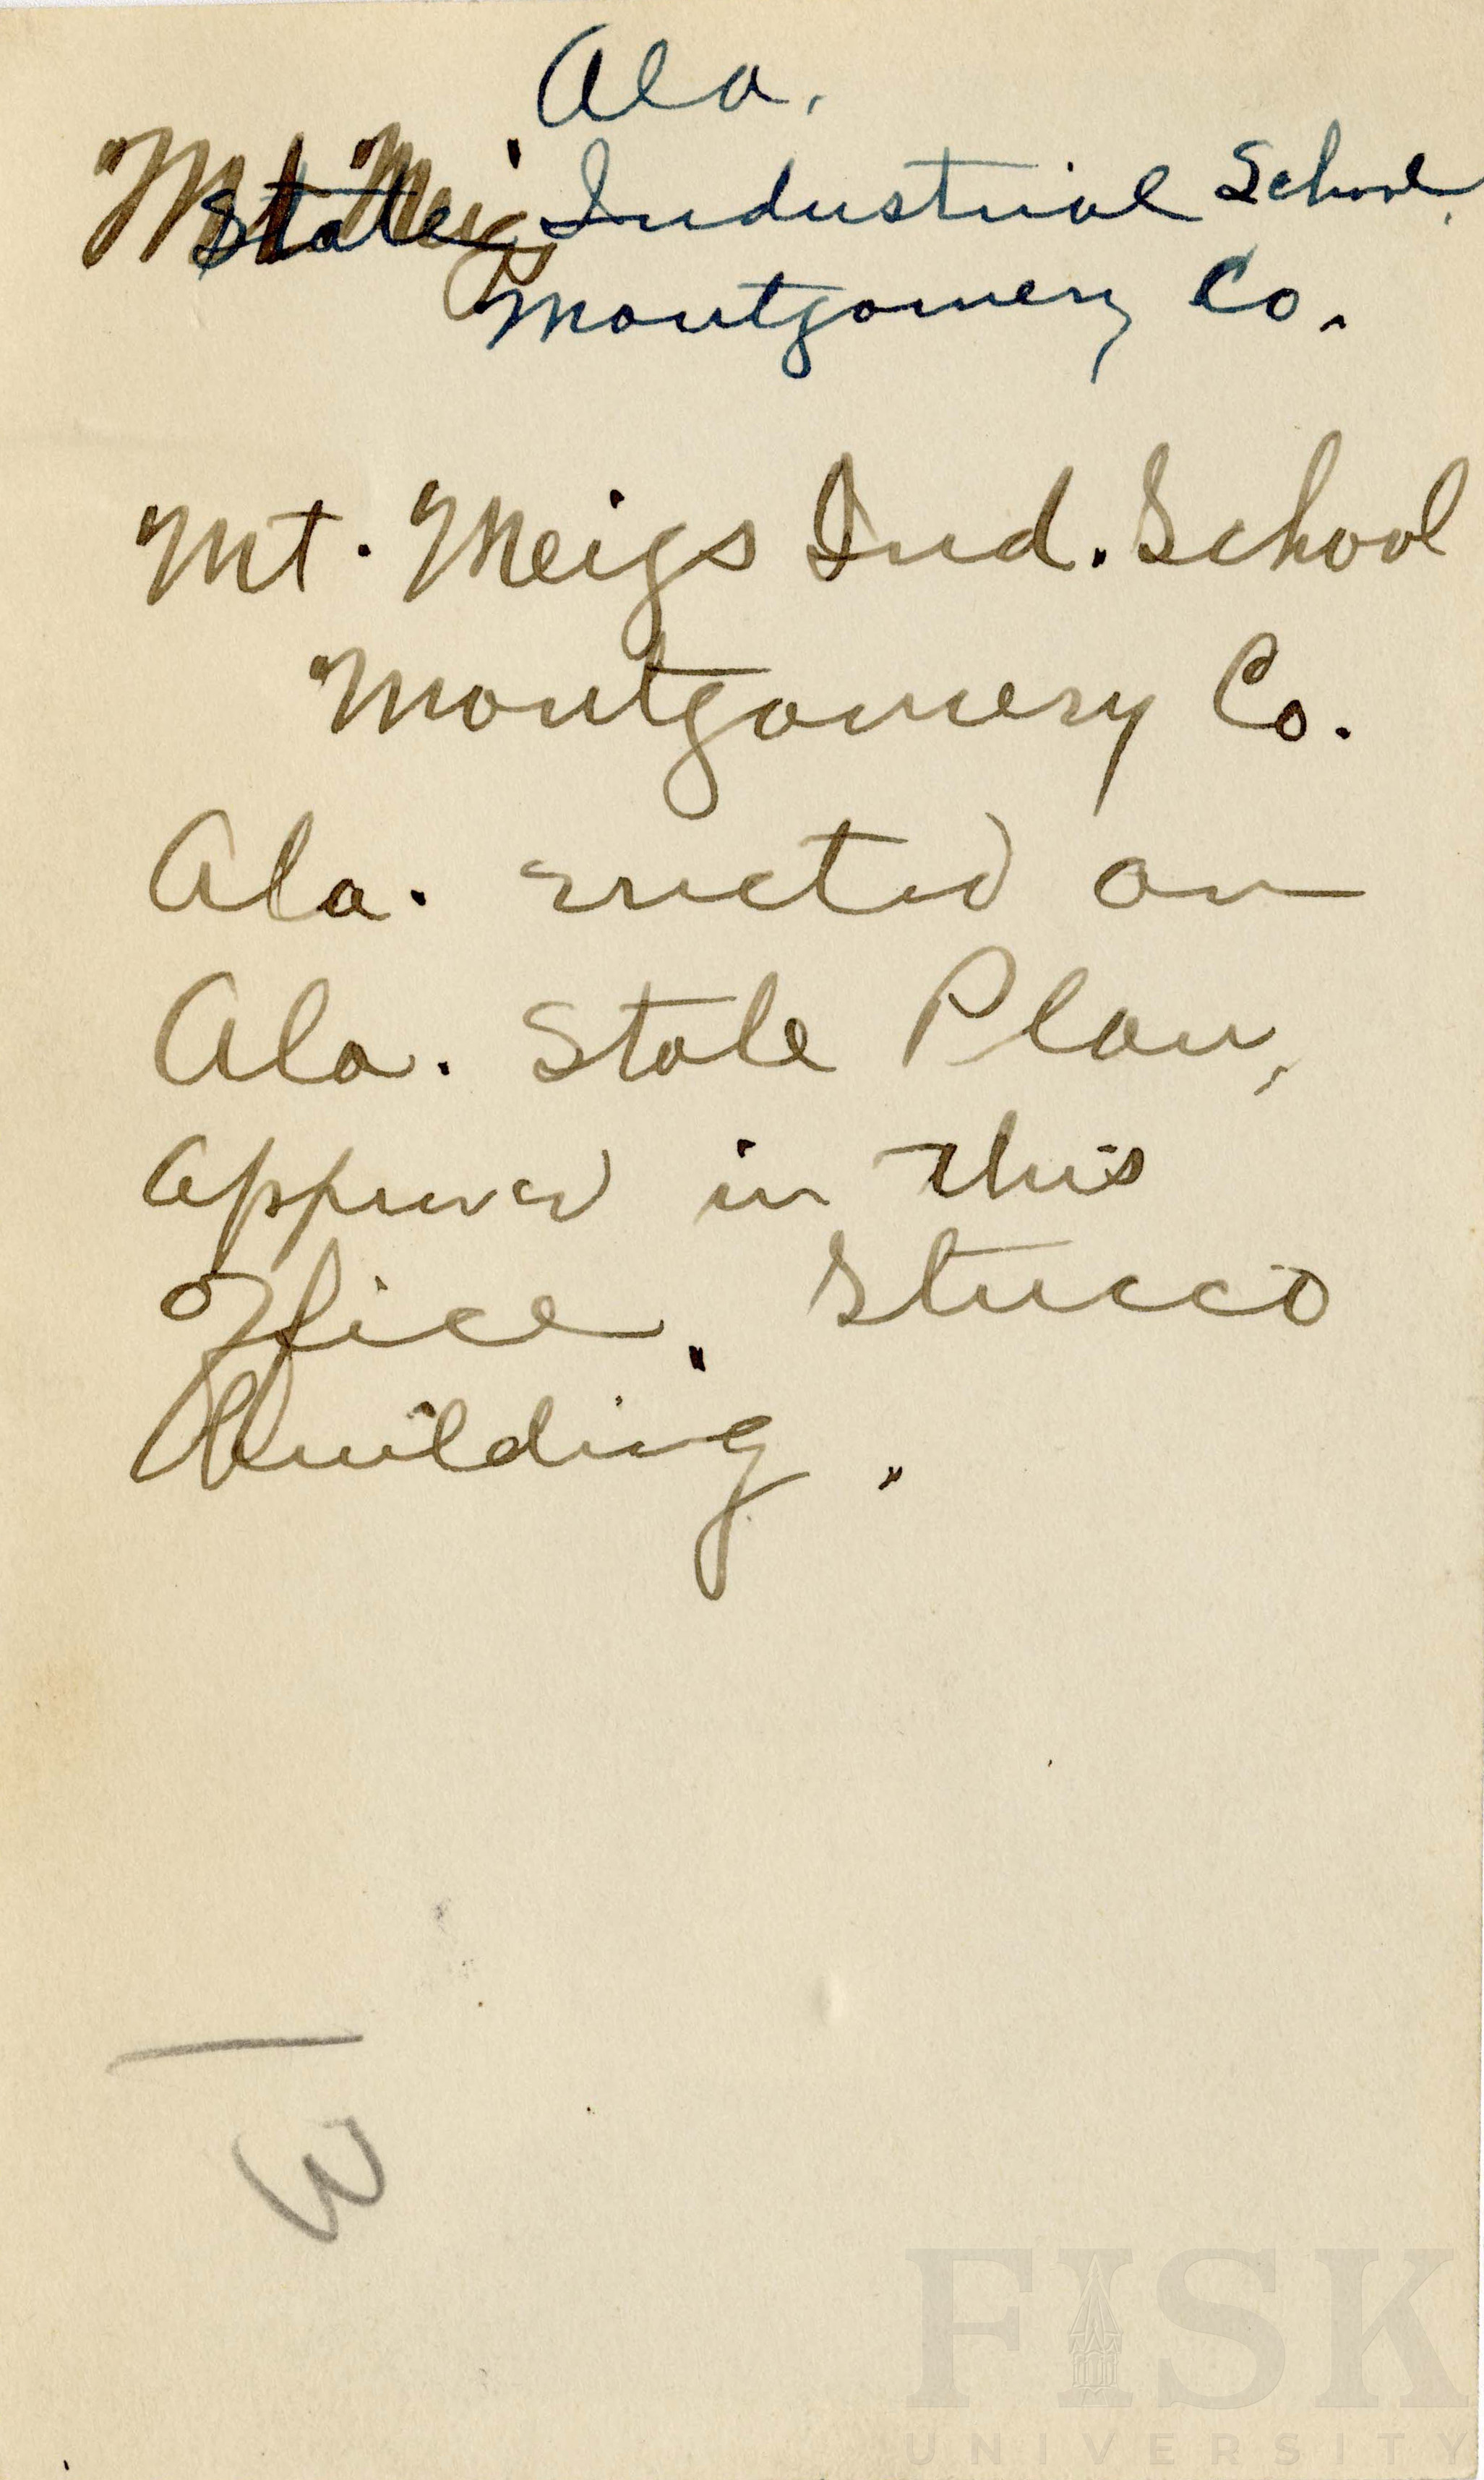 Ala.
Mt. Meigs State Industrial School,
Montgomery Co.
Mt. Meigs Ind. School
Montgomery Co.
Ala. erected on
Ala. State Plan,
approved in this
Office. Stucco
Building.
W
FISK
UNIVERSITY